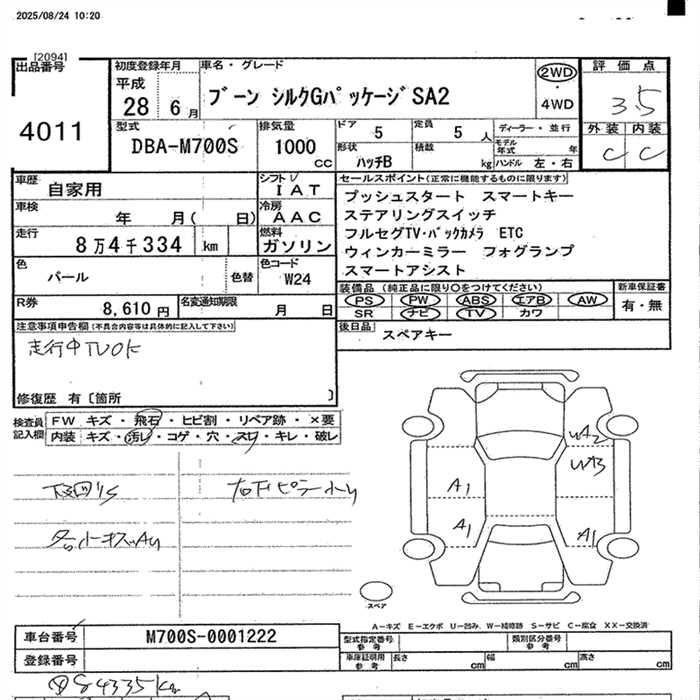 2025/08/24 10:20
[2094]
出品番号
4011
初度登録年月
平成
28 6 月
車名・グレード
ブーン シルクGパッケージSA2
2WD
・
4WD
評価点
3.5
外装 内装
C C
型式
DBA-M700S
排気量
1000 cc
ドア 5
定員 5 人
形状 ハッチB
積載 kg
ディーラー・並行
モデル年式 年
ハンドル 左・右
車歴
自家用
シフト
I A T
セールスポイント(正常に機能するものに限ります)
プッシュスタート スマートキー
ステアリングスイッチ
フルセグTV・バックカメラ ETC
ウィンカーミラー フォグランプ
スマートアシスト
車検
年 月( 日)
冷房
A A C
走行
8万4千334 km
燃料
ガソリン
色
パール
色替
色コード
W24
装備品(純正品に限り○をつけてください)
PS PW ABS エアB AW
SR ナビ TV カワ
新車保証書
有・無
R券
8,610 円
名変通知期限
月 日
後日品
スペアキー
注意事項申告欄(不具合内容等は具体的に記入して下さい)
走行中TVOK
修復歴 有〔箇所 〕
検査員記入欄
FW キズ・飛石・ヒビ割・リペア跡・×要
内装 キズ・汚レ・コゲ・穴・スレ・キレ・破レ
A1
A1
WA2
WB
A1
スペア
A-キズ E-エクボ U-凹み W-補修跡 S-サビ C-腐食 XX-交換済
車台番号
M700S-0001222
登録番号
型式指定番号 参考
類別区分番号 参考
車庫証明用 参考
長さ cm
幅 cm
高さ cm
84335km